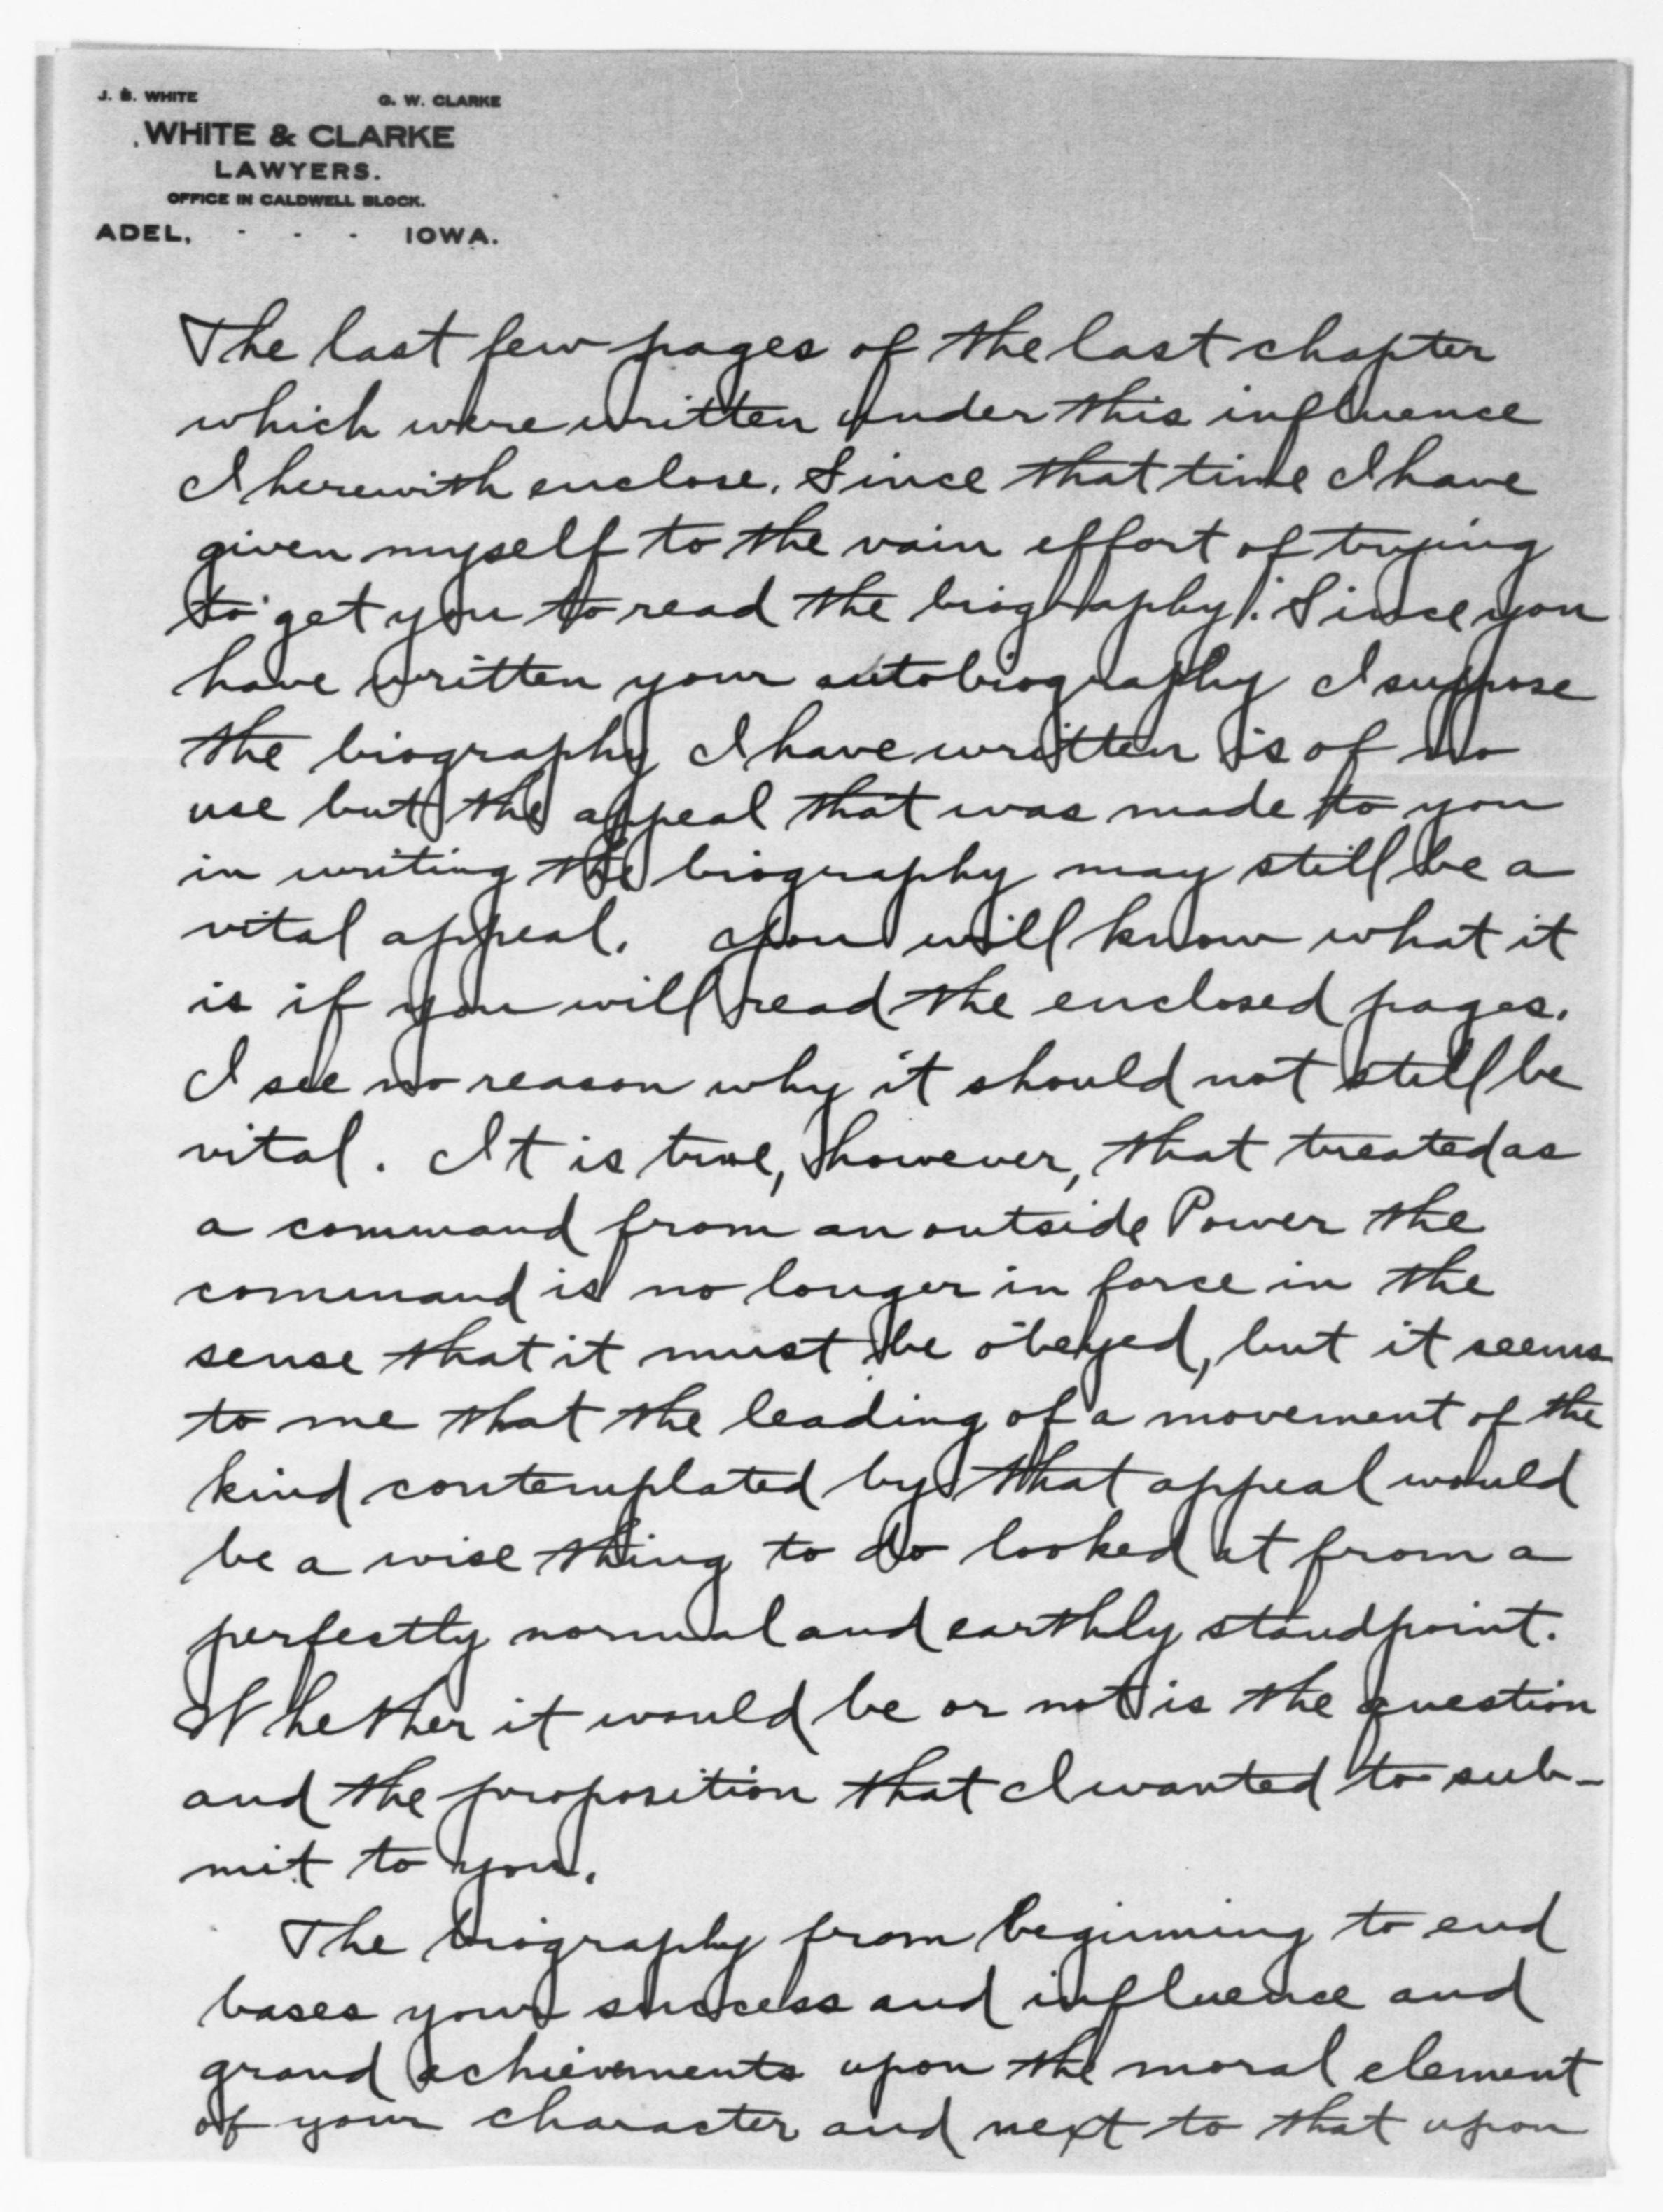 J. B. WHITE G. W. CLARKE
WHITE & CLARKE
LAWYERS.
OFFICE IN CALDWELL BLOCK.
ADEL, - - - IOWA.
The last few pages of the last chapter
which were written under this influence
I herewith enclose. Since that time I have
given myself to the vain effort of trying
to get you to read the biography. Since you
have written your autobiography I suppose
the biography I have written is of no
use but the appeal that was made to you
in writing the biography may still be a
vital appeal. You will know what it
is if you will read the enclosed pages.
I see no reason why it should not still be
vital. It is true, however, that treated as
a command from an outside Power the
command is no longer in force in the
sense that it must be obeyed, but it seems
to me that the leading of a movement of the
kind contemplated by that appeal would
be a wise thing to do looked at from a
perfectly normal and earthly standpoint.
Whether it would be or not is the question
and the proposition that I wanted to sub-
mit to you.
The biography from beginning to end
bases your success and influence and
grand achievments upon the moral element
of your character and next to that upon